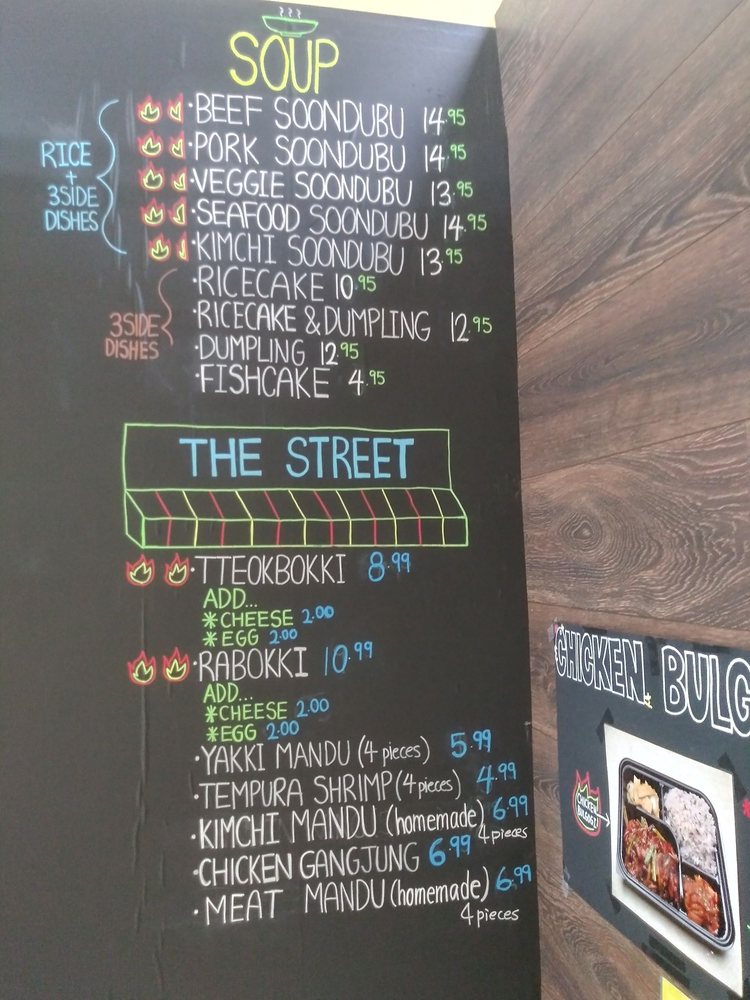 SOUP
RICE
+
3SIDE
DISHES
·BEEF SOONDUBU 14.95
·PORK SOONDUBU 14.95
·VEGGIE SOONDUBU 13.95
·SEAFOOD SOONDUBU 14.95
·KIMCHI SOONDUBU 13.95
3SIDE
DISHES
·RICECAKE 10.95
·RICECAKE & DUMPLING 12.95
·DUMPLING 12.95
·FISHCAKE 4.95
THE STREET
·TTEOKBOKKI 8.99
ADD...
*CHEESE 2.00
*EGG 2.00
·RABOKKI 10.99
ADD...
*CHEESE 2.00
*EGG 2.00
·YAKKI MANDU (4 pieces) 5.99
·TEMPURA SHRIMP (4 pieces) 4.99
·KIMCHI MANDU (homemade) 6.99
4 pieces
·CHICKEN GANGJUNG 6.99
·MEAT MANDU (homemade) 6.99
4 pieces
CHICKEN BULG
CHICKEN
BULGOGI